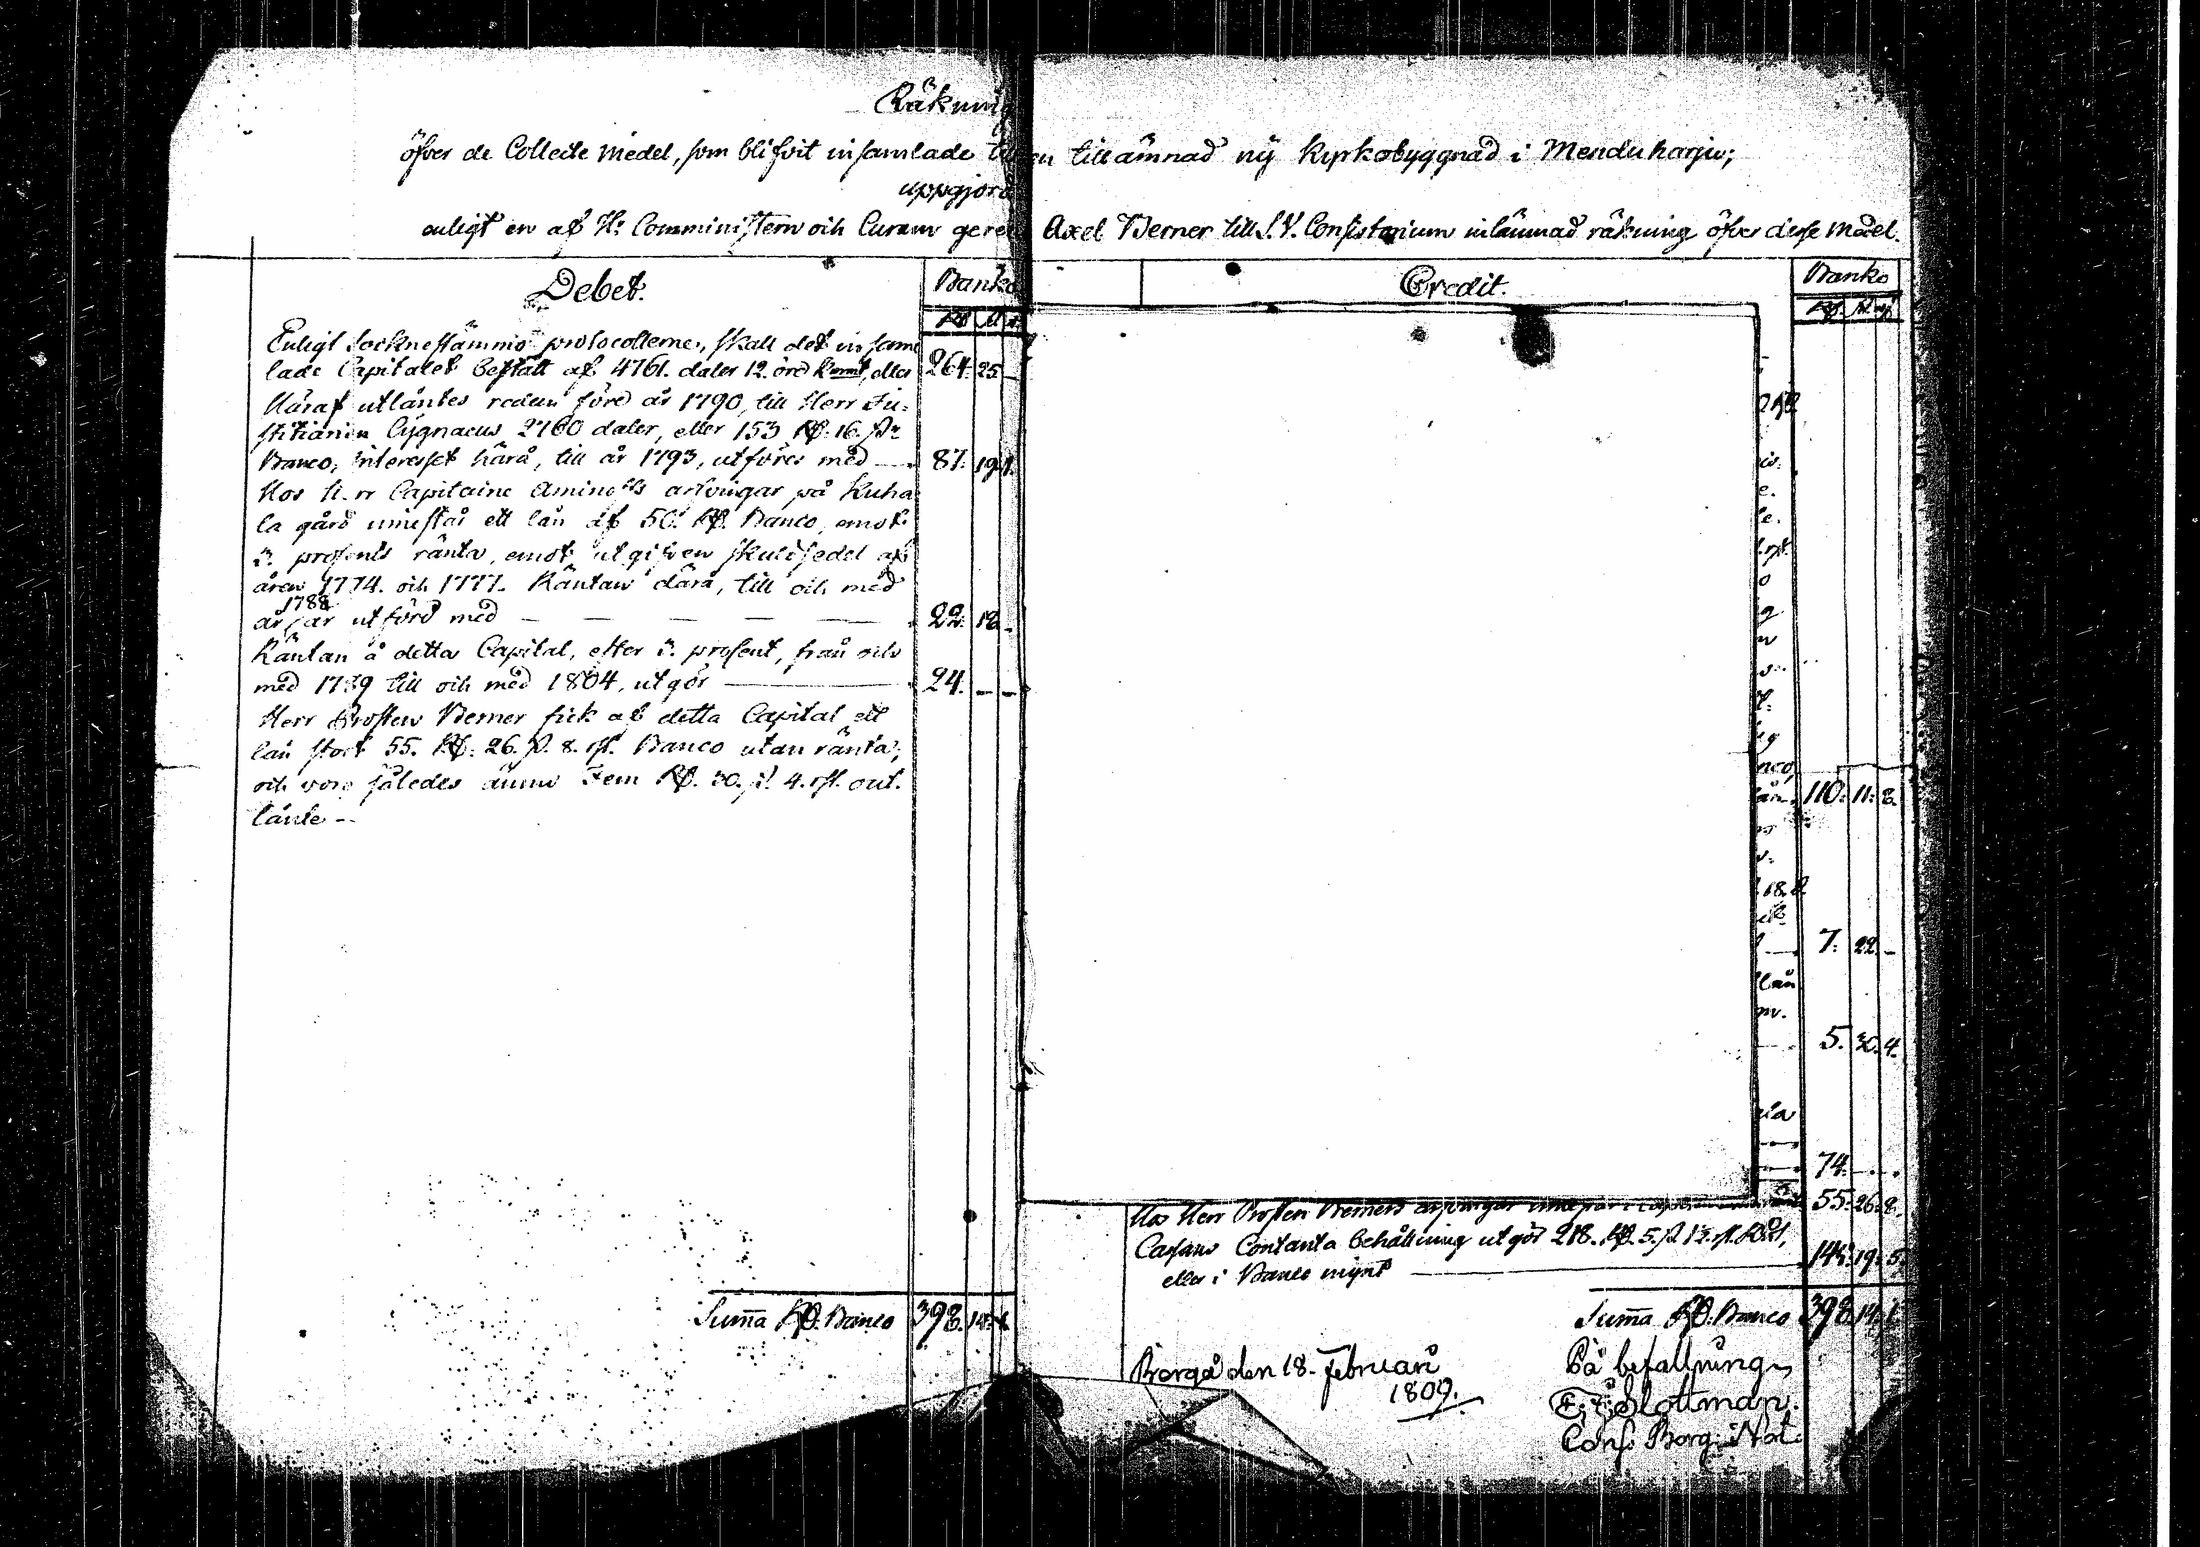 Räkning
öfver de Collecte medel, som blifvit insamlade till en tillämnad ny Kyrkobyggnad i Menduharju;
uppgjord
enligt en af Hr Comministern och Curam gerens Axel Berner till S.V. Consistorium inlämnad räkning öfver desse medel.
Debet.
Banko
Enligt Sockne stämmo protocollerne, skall det insam
lade Capitalet bestått af 4761. daler 12. öre Kmt, eller 264. 25. —
Häraf utlåntes redan före år 1790, till Herr Ju-
stitiarien Cygnaeus 2760 daler, eller 153 Rd. 16. sk
Banco, interesset härå, till år 1793, utföres med — 87. 19. 1.
Hos Herr Capitaine Aminoffs arfvingar på Kuha
la gård innestår ett lån af 50. Rd. Banco, emot
3. prosents ränta, emot utgifven skuldsedel af
åren 1774. och 1777. Räntan därå, till och med
1788
år är utförd med — — — — — 22. 18. —
Räntan å detta Capital, efter 3. prosent, från och
med 1789 till och med 1804, utgör — 24. — —
Herr Prosten Berner fick af detta Capital ett
lån stort 55. Rd. 26. sk. 8. rst. Banco utan ränta;
och voro således ännu Fem Rd. 30. sk. 4. rst. out.
lånte —
Summa Rd. Banco 398. 14.
Credit.
Banko
110. 11. 8.
18.
7. 22. —
lån
5. 30. 4.
74. — —
55. 26. 8.
Hos Herr Prosten Berners arfvingar
Cassans Contanta behållning utgör 218. Rd. 5. sk
eller i Banco mynt — 145. 19. 5.
Summa Rd. Banco 398. 14.
Borgå den 18. Februari
1809.
På befallning
Slottman.
Cons. Borg. Not.